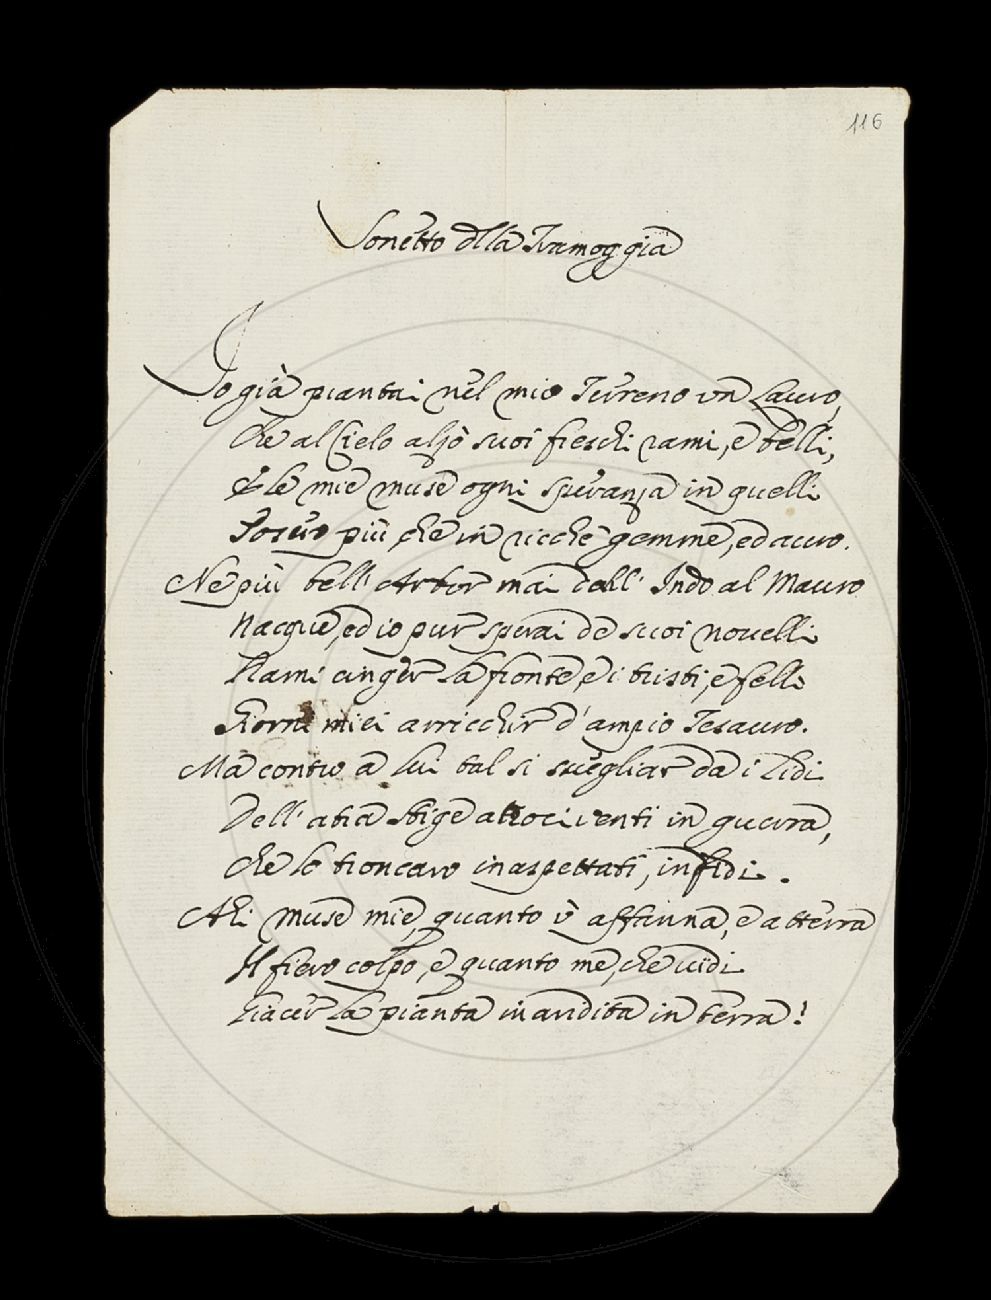 116
Sonetto dlla Tramoggia
Io già piantai nel mio Terreno un Lauro,
Che al Cielo alzò suoi freschi rami, e belli,
E le mie muse ogni speranza in quelli
Poser più che in ricche gemme, ed auro.
Ne più bell' Arbor mai dall' Indo al Mauro
Nacque, ed io pur sperai de suoi novelli
Rami cinger la fronte, e i tristi, e felli
Giorni miei arricchir d'ampio Tesauro.
Ma contro a lui tal si svegliar da i Lidi
Dell' atra stige atroci venti in guerra,
Che lo troncaro inaspettati, infidi.
Ahi muse mie, quanto v' affanna, e atterra
Il fiero colpo, e quanto me, che vidi
Giacer la pianta inaridita in terra!